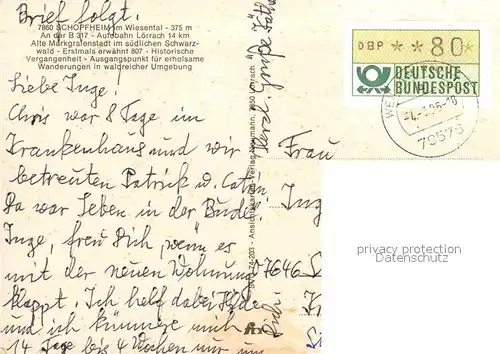 Brief folgt.
7860 SCHOPFHEIM im Wiesental - 375 m
An der B 317 - Autobahn Lörrach 14 km
Alte Markgrafenstadt im südlichen Schwarz-
wald - Erstmals erwähnt 807 - Historische
Vergangenheit - Ausgangspunkt für erholsame
Wanderungen in waldreicher Umgebung
Liebe Inge!
Chris war 8 Tage im
Krankenhaus und wir
betreuten Patrick u.
Da war Leben in der Bude
Inge, freu Dich, wenn es
mit der neuen Wohnung
klappt. Ich helf dabei
und ich kümmere mich
14 Tage bis 4 Wochen nur um
DBP * * 80
DEUTSCHE
BUNDESPOST
79576
Frau
Inge
7646
privacy protection
Datenschutz